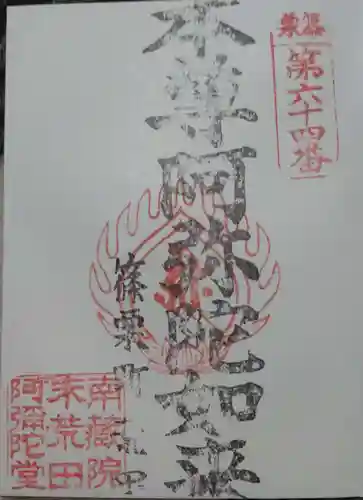 篠栗
第六十四番
本尊阿弥陀如来
篠栗町荒田
南蔵院
末荒田
阿彌陀堂